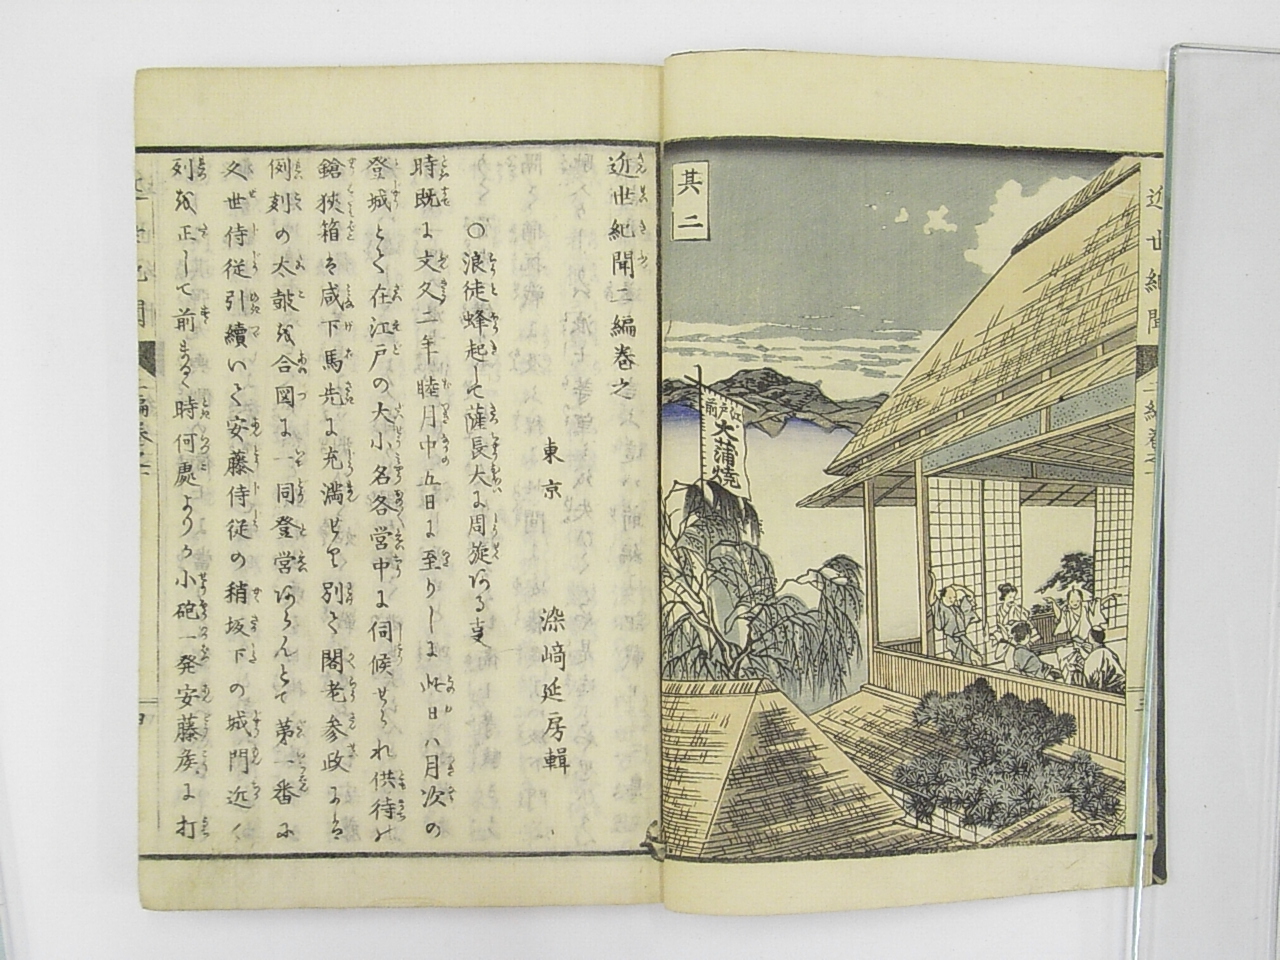 其二
江戸前
大蒲焼
近世紀聞二編巻之
近世紀聞二編巻之一
東京　染﨑延房輯
○浪徒蜂起して薩長大に周旋なる事
時既に文久二年睦月中五日に至りしに此日ハ月次の
登城とて在江戸の大小名各営中に伺候せられ供待の
鎗挾箱を咸下馬先に充満せり別て閣老参政には
例刻の太鼓を合図に一同登営あらんとて第一番に
久世侍従引續いて安藤侍従の稍坂下の城門近く
列を正して前まるゝ時何處よりか小砲一発安藤矦に打